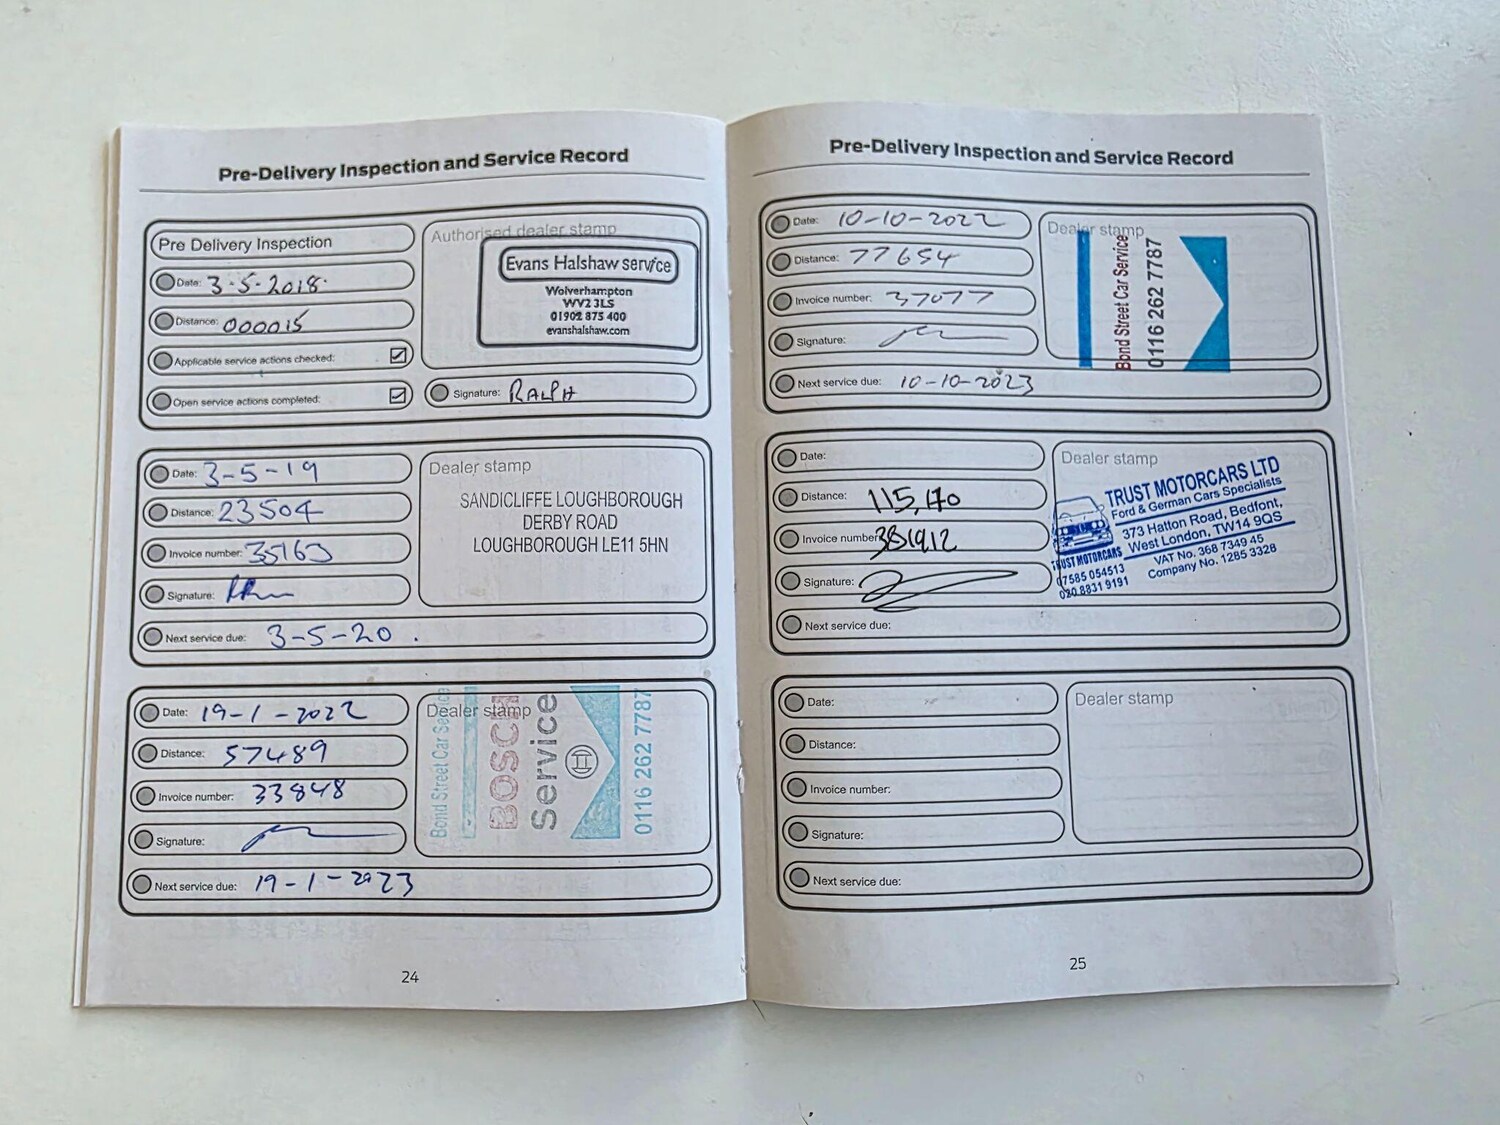 Pre-Delivery Inspection and Service Record
Pre Delivery Inspection
Date: 3-5-2018.
Distance: 000015
Applicable service actions checked:
Open service actions completed:
Authorised dealer stamp
Evans Halshaw service
Wolverhampton
WV2 3LS
01902 875 400
evanshalshaw.com
Signature: RALPH
Date: 3-5-19
Distance: 23504
Invoice number: 35163
Signature:
Next service due: 3-5-20.
Dealer stamp
SANDICLIFFE LOUGHBOROUGH
DERBY ROAD
LOUGHBOROUGH LE11 5HN
Date: 19-1-2022
Distance: 57489
Invoice number: 33848
Signature:
Next service due: 19-1-2023
Dealer stamp
Bond Street Car Service
BOSCH
Service
0116 262 7787
24
Pre-Delivery Inspection and Service Record
Date: 10-10-2022
Distance: 77654
Invoice number: 37077
Signature:
Next service due: 10-10-2023
Dealer stamp
Bond Street Car Service
0116 262 7787
Date:
Distance: 115,170
Invoice number:
Signature:
Next service due:
Dealer stamp
TRUST MOTORCARS LTD
Ford & German Cars Specialists
373 Hatton Road, Bedfont,
West London, TW14 9QS
VAT No. 368 7349 45
Company No. 1285 3328
TRUST MOTORCARS
07585 054513
020 8831 9191
Date:
Distance:
Invoice number:
Signature:
Next service due:
Dealer stamp
25